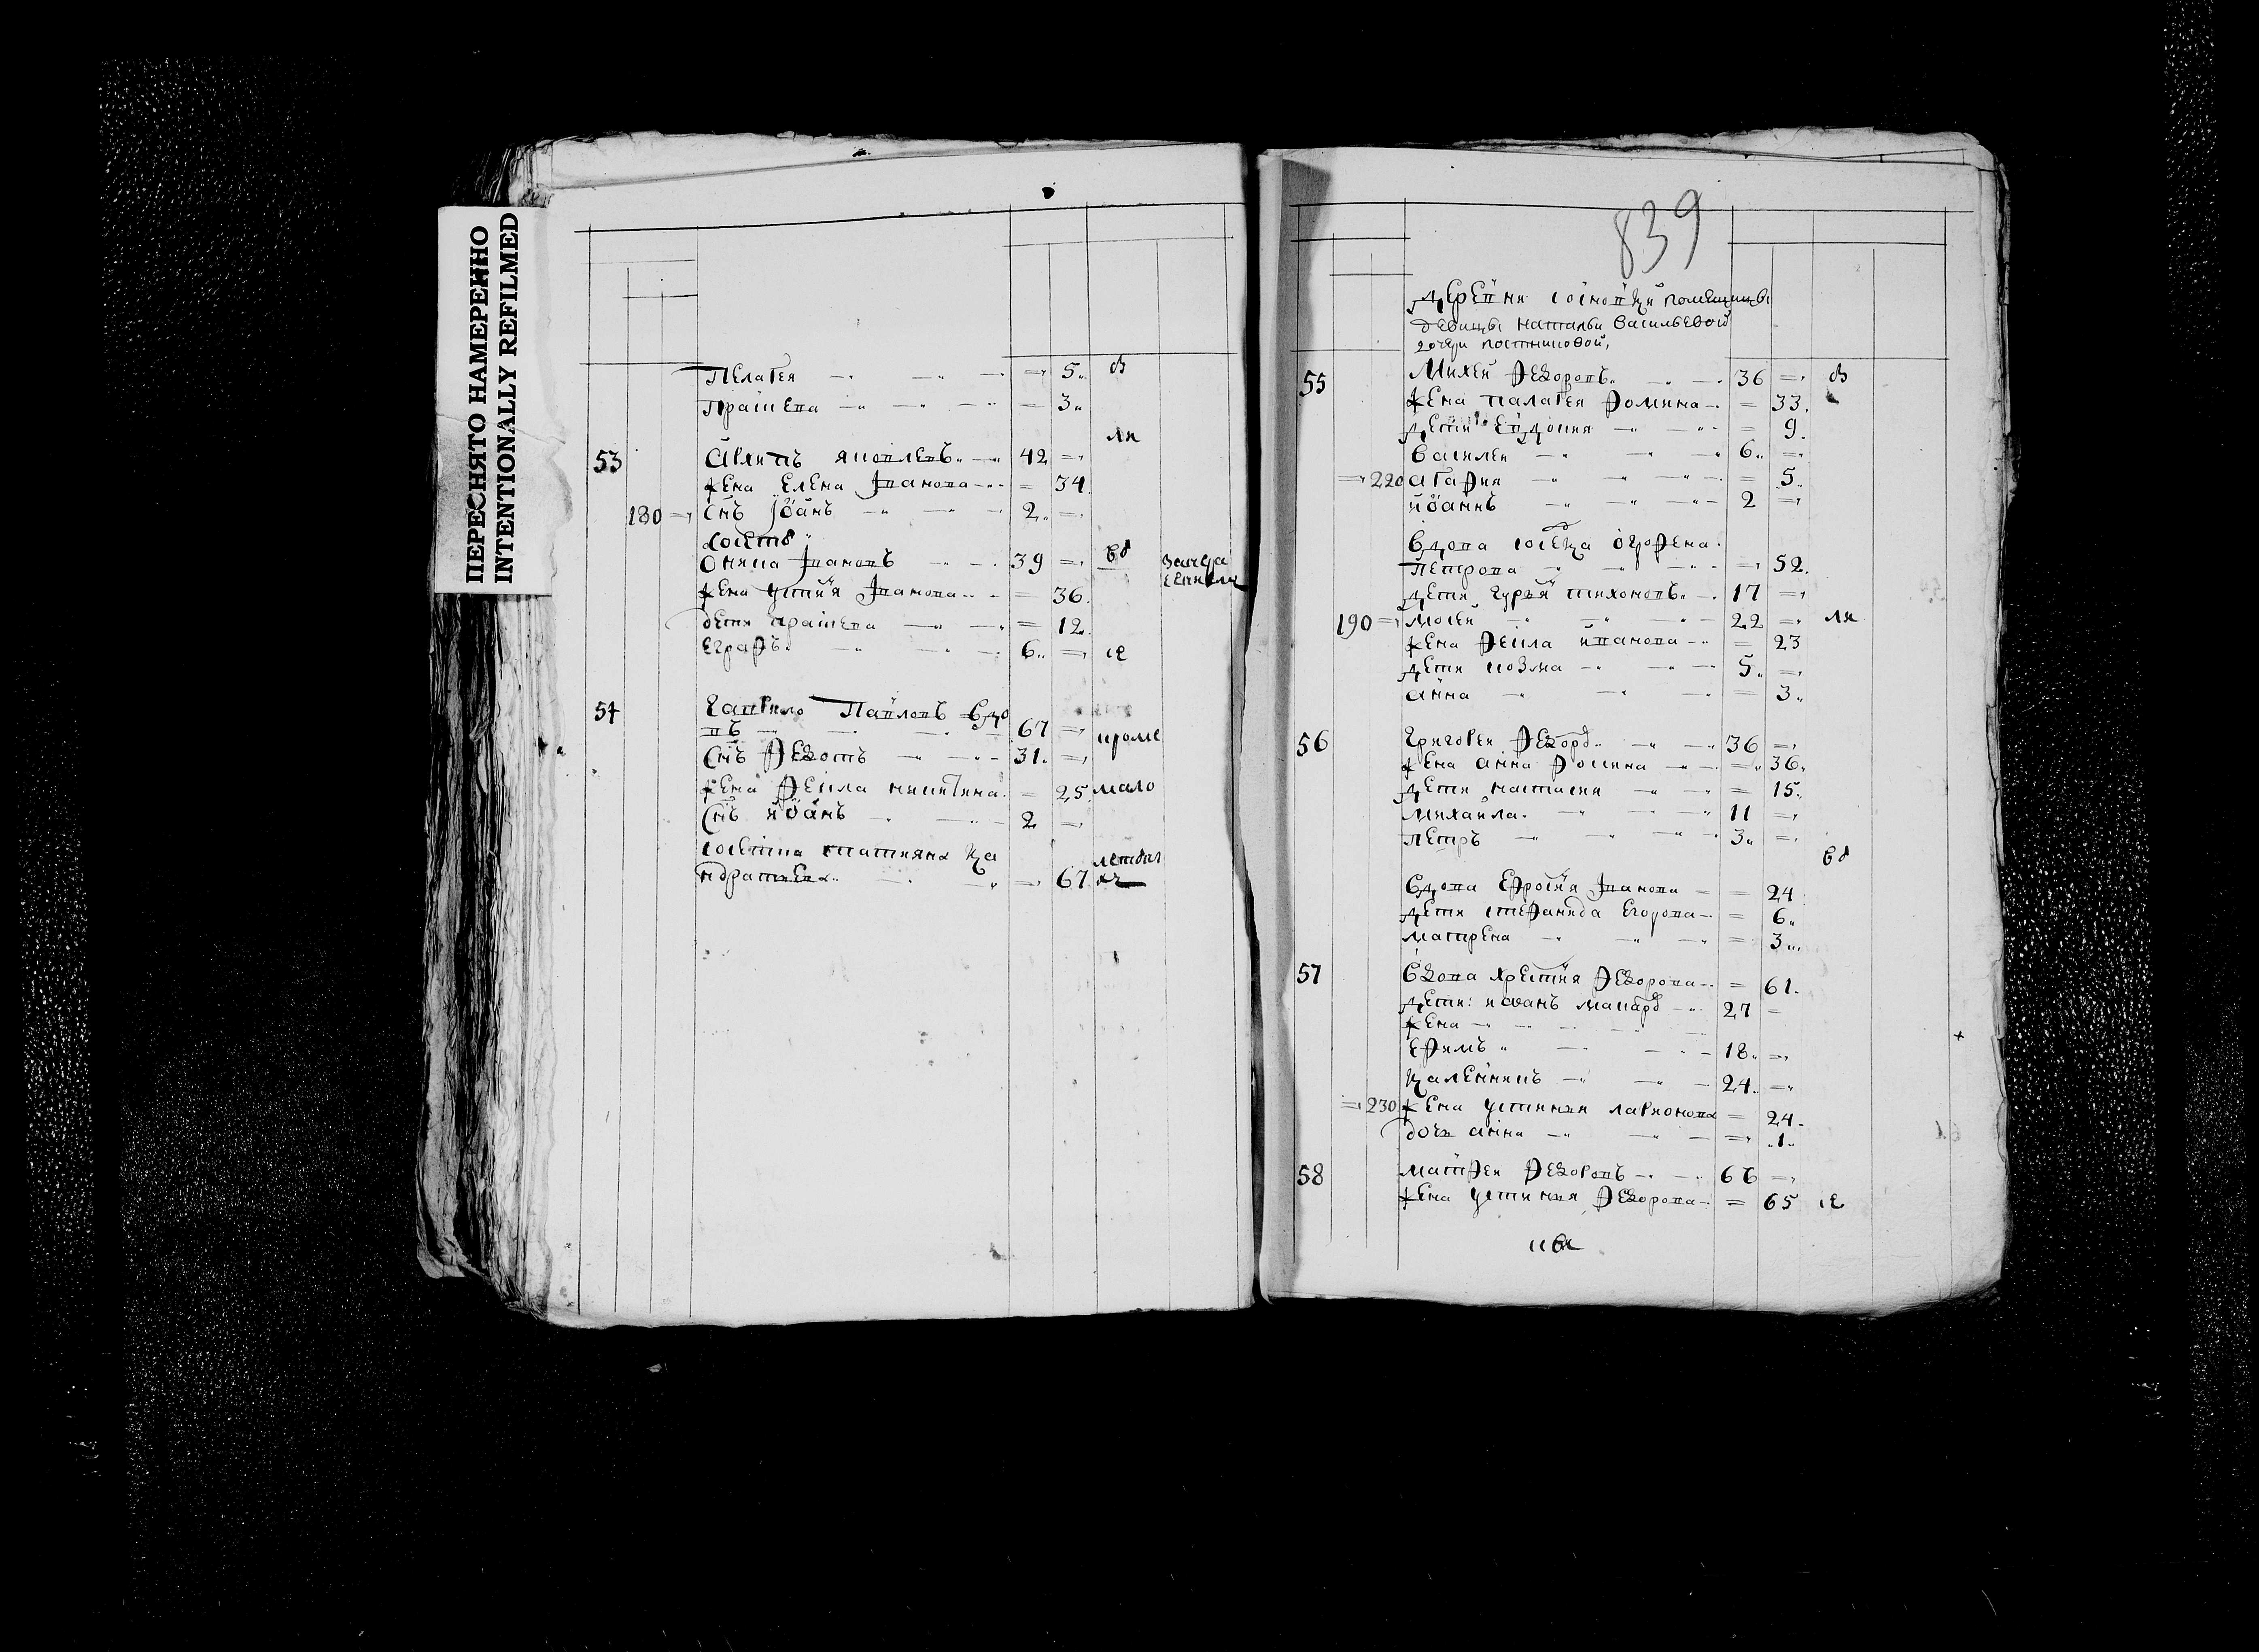 ПЕРЕСНЯТО НАМЕРЕННО
INTENTIONALLY REFILMED
Пелагея 5
Праскева 3
53 яковлевъ 42
жена Елена Іванова 34
180 Снъ Іоанъ 2
Івановъ 39 вд
жена устинія Іванова 36
дети праскева 12
Еграфъ 6 се
54 Гаврило Павловъ вдо
въ 67 кроме
Снъ Федотъ 31
жена Фекла никитина 25 мало
Снъ иоанъ 2
татияна ка
ндратьева 67
839
деревни помещицы
девицы натальи васильевой
дочери постниковой,
55 Михей Федоровъ 36 въ
жена палагея Фомина 33
дети Евдокия 9
василей 6
220 агафия 5
иоаннъ 2
вдова огрофена
петрова 52
дети гурья тихоновъ 17
190 мосей 22 ли
жена Фекла иванова 23
дети козма 5
анна 3
56 григорей Федоров 36
жена анна Фокина 36
дети настасия 15
михайла 11
петръ 3
вд
вдова Ефросиния Іванова 24
дети стефанида Егорова 6
матрена 3
57 вдова христиния Федорова 61
дети иванъ макаров 27
жена
ефимъ 18
калениикъ 24
230 жена устинья ларионова 24
дочь анна 1
58 матфей Федоровъ 66
жена устинья Федорова 65 се